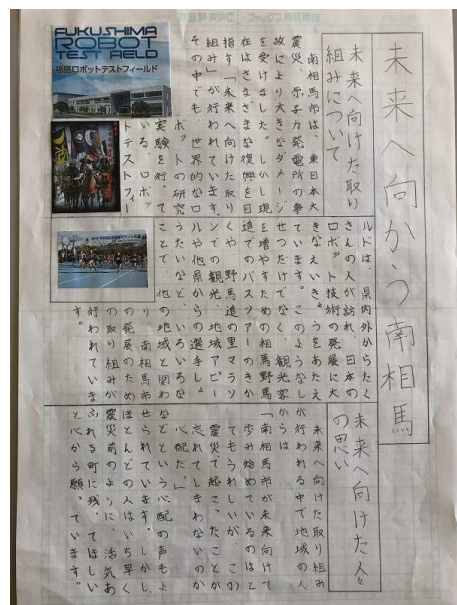 未来へ向かう南相馬
未来へ向けた取り
組みについて
南相馬市は、東日本大
震災、原子力発電所の事
故により大きなダメージ
を受けました。しかし現
在はさまざまな復興を目
指す「未来へ向けた取り
組み」が行われています。
その中でも、世界的なロ
ボットの研究
実験を行って
いる、ロボッ
トテストフィー
FUKUSHIMA
ROBOT
TEST FIELD
福島ロボットテストフィールド
ルドは、県内外からたく
さんの人が訪れ、日本の
ロボット技術の発展に大
きなえいきょうをあたえ
ています。このようなし
せつだけでなく、観光客
を増やすための相馬野馬
追でのバスツアーのきか
くや、野馬追の里マラソ
ンでの観光、地域アピー
ルや他県からの選手しょ
うたいなど、いろいろな
ことで、他の地域と関わ
り、南相馬市
の発展のため
の取り組みが
行われていま
す。
未来へ向けた人々
の思い
未来へ向けた取り組み
が行われる中で地域の人
からは
「南相馬市が未来向けて
歩み始めているのはと
てもうれしいが、この
震災で起こったことが
忘れてしまわないのか
心配だ。」
などという心配の声もよ
せられています。しかし、
ほとんどの人はいち早く
震災前のように、活気あ
ふれる町に残ってほしい
と心から願っています。